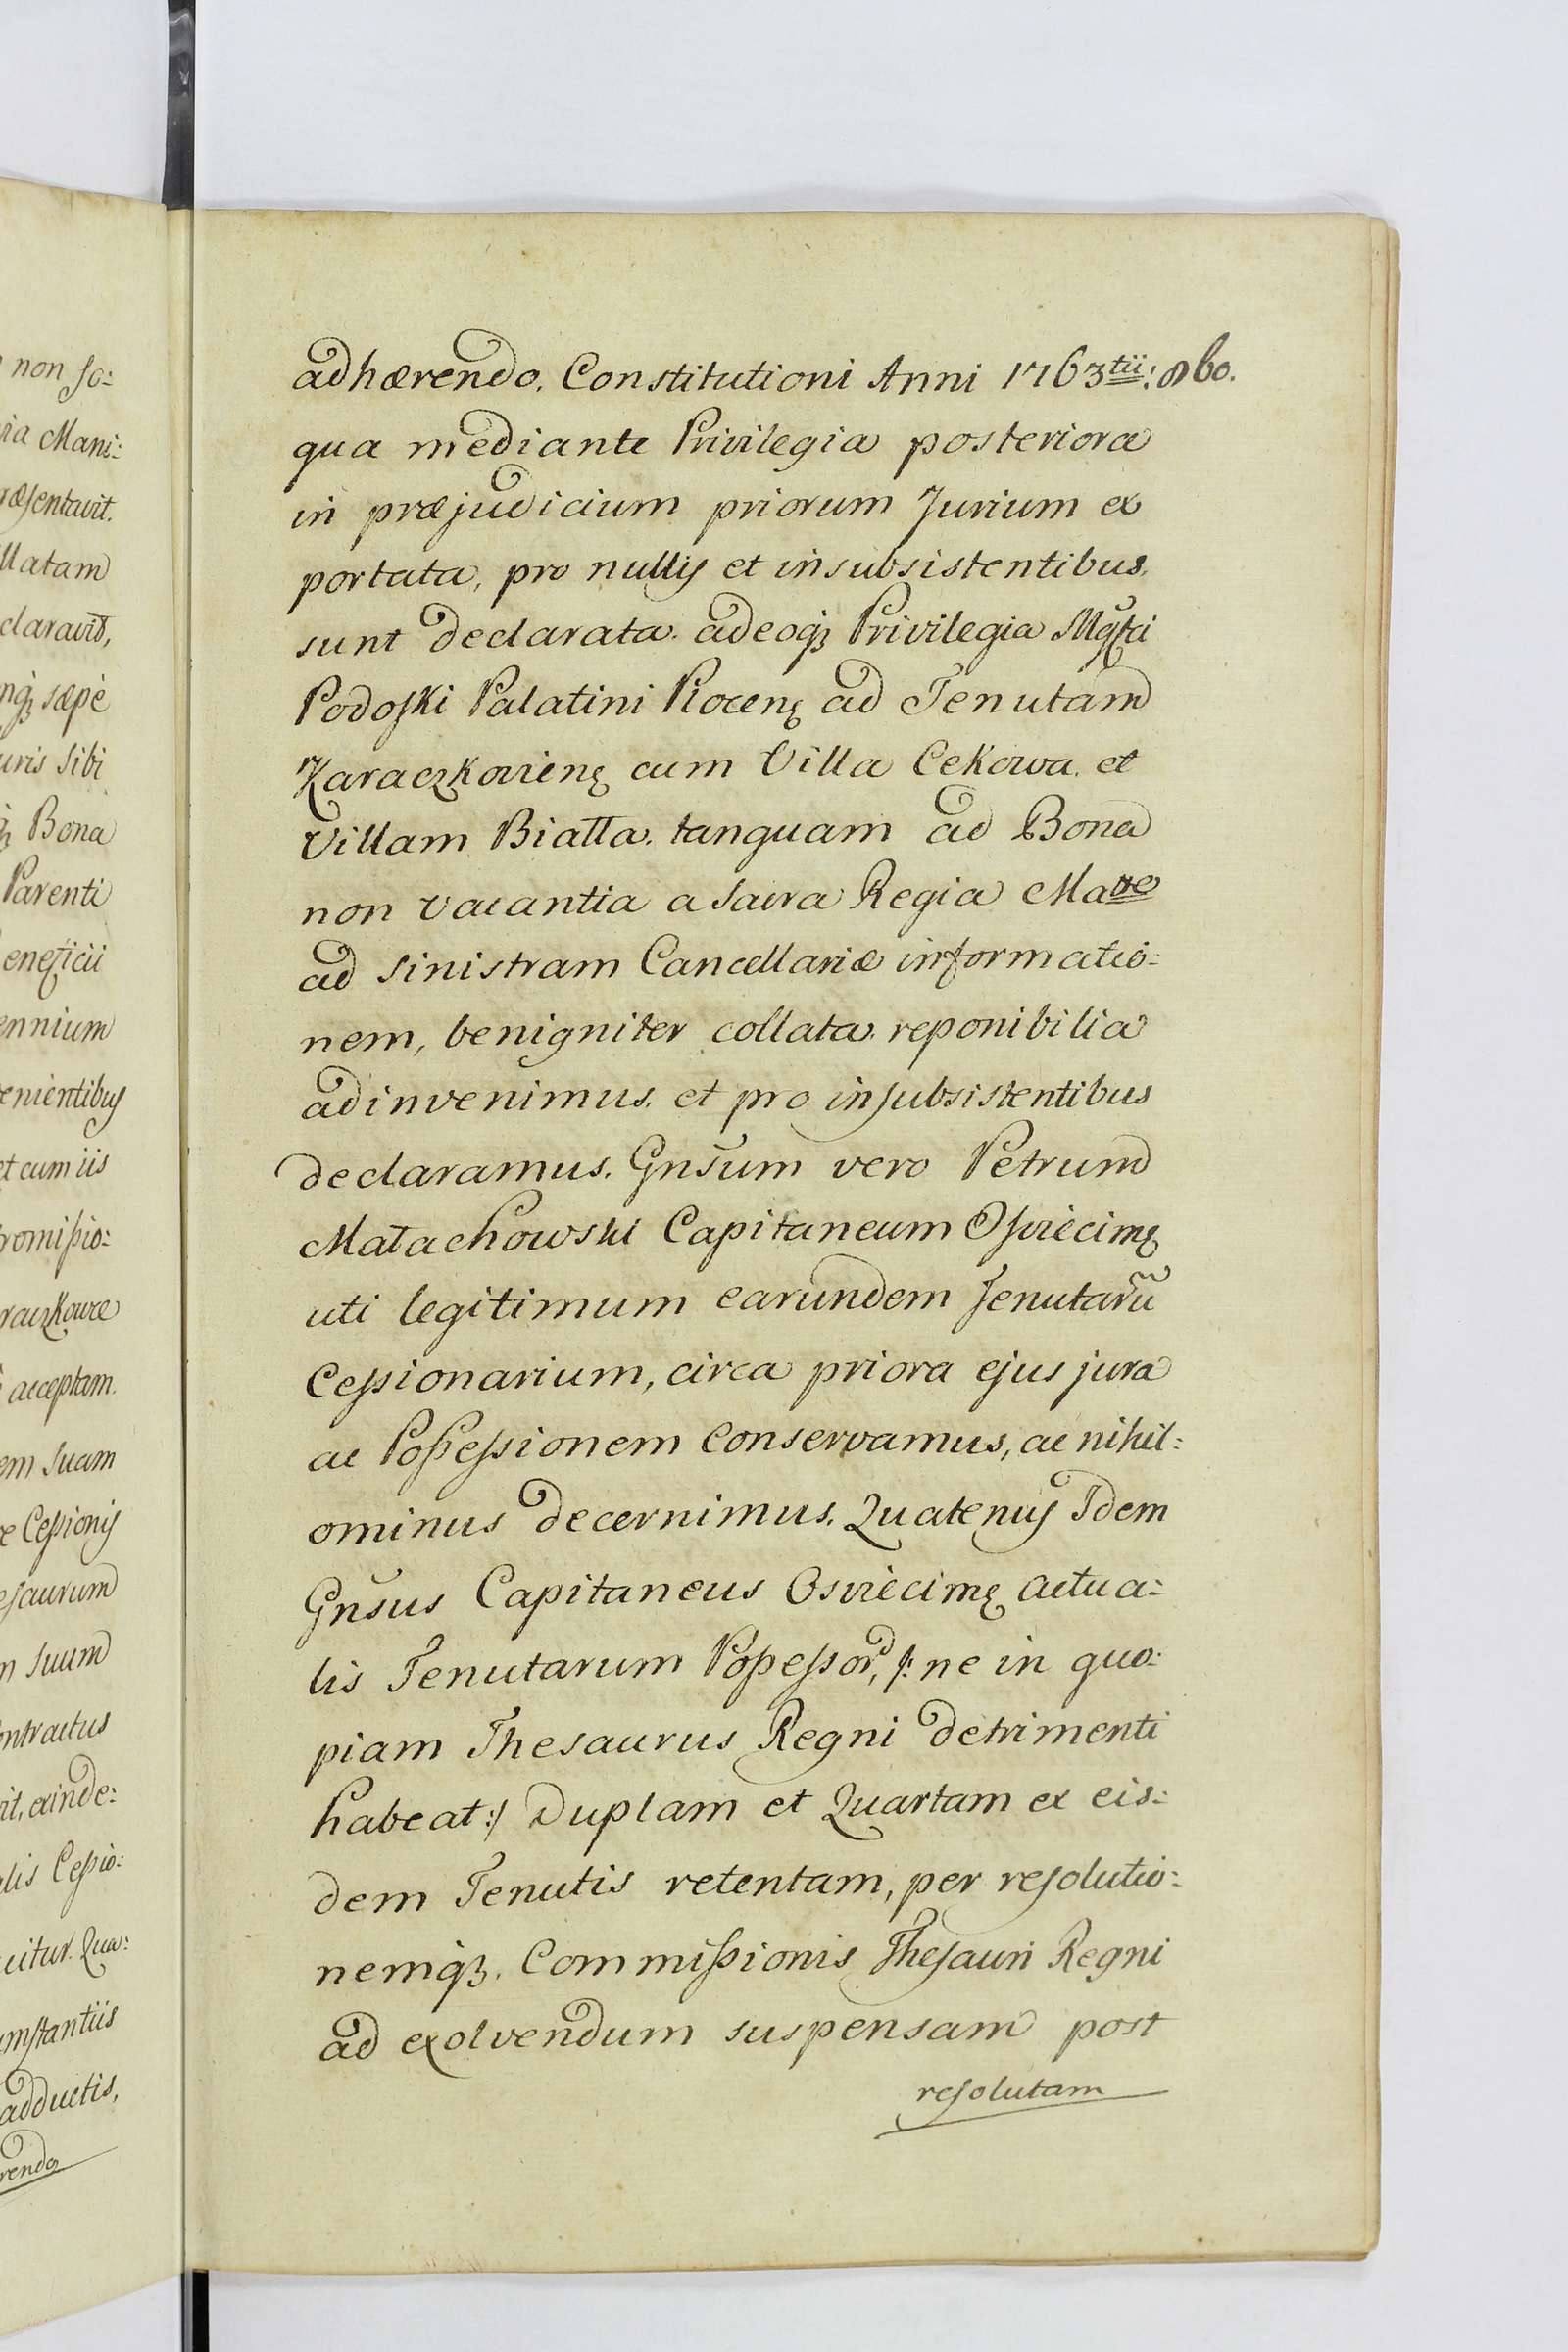 non so:
Mani:
ræsentavit.
llatam
claravit,
nqꝫ sæpè
uris Sibi
Bona
Parenti
eneficii
ennium
enientibus
et cum iis
romissio:
raczkowce
acceptam.
em Suam
Cessionis
esaurum
m Suum
ontractus
it, exinde:
alis Cessio:
uitur. Qua:
umstantiis
adductis,
rendo
adhærendo. Constitutioni Anni 1763tii: 860.
qua mediante Privilegia posteriora
in præjudicium priorum Jurium ex
portata, pro nullis et insubsistentibus.
sunt declarata. adeoqꝫ Privilegia Mgfci
Podoski Palatini Plocenꝫ ad Tenutam
Karaczkovienꝫ cum Villa Cekowa. et
Villam Biatta. tanquam ad Bona
non vacantia a Sacra Regia Matte
ad Sinistram Cancellariæ informatio:
nem, benigniter collata. reponibilia
adinvenimus. et pro insubsistentibus
declaramus. Gnsum vero Petrum
Małachowski Capitaneum Osviecimꝫ
uti legitimum earundem Tenutarũ
Cessionarium, circa priora ejus jura
ac Possessionem conservamus, ac nihil:
ominus decernimus. Quatenus Idem
Gnsus Capitaneus Osviecimꝫ actua:
lis Tenutarum Possessor, /: ne in quo:
piam Thesaurus Regni detrimenti
habeat :/ Duplam et Quartam ex eis:
dem Tenutis retentam, per resolutio:
nemqꝫ. Commissionis Thesauri Regni
ad exolvendum suspensam post
resolutam